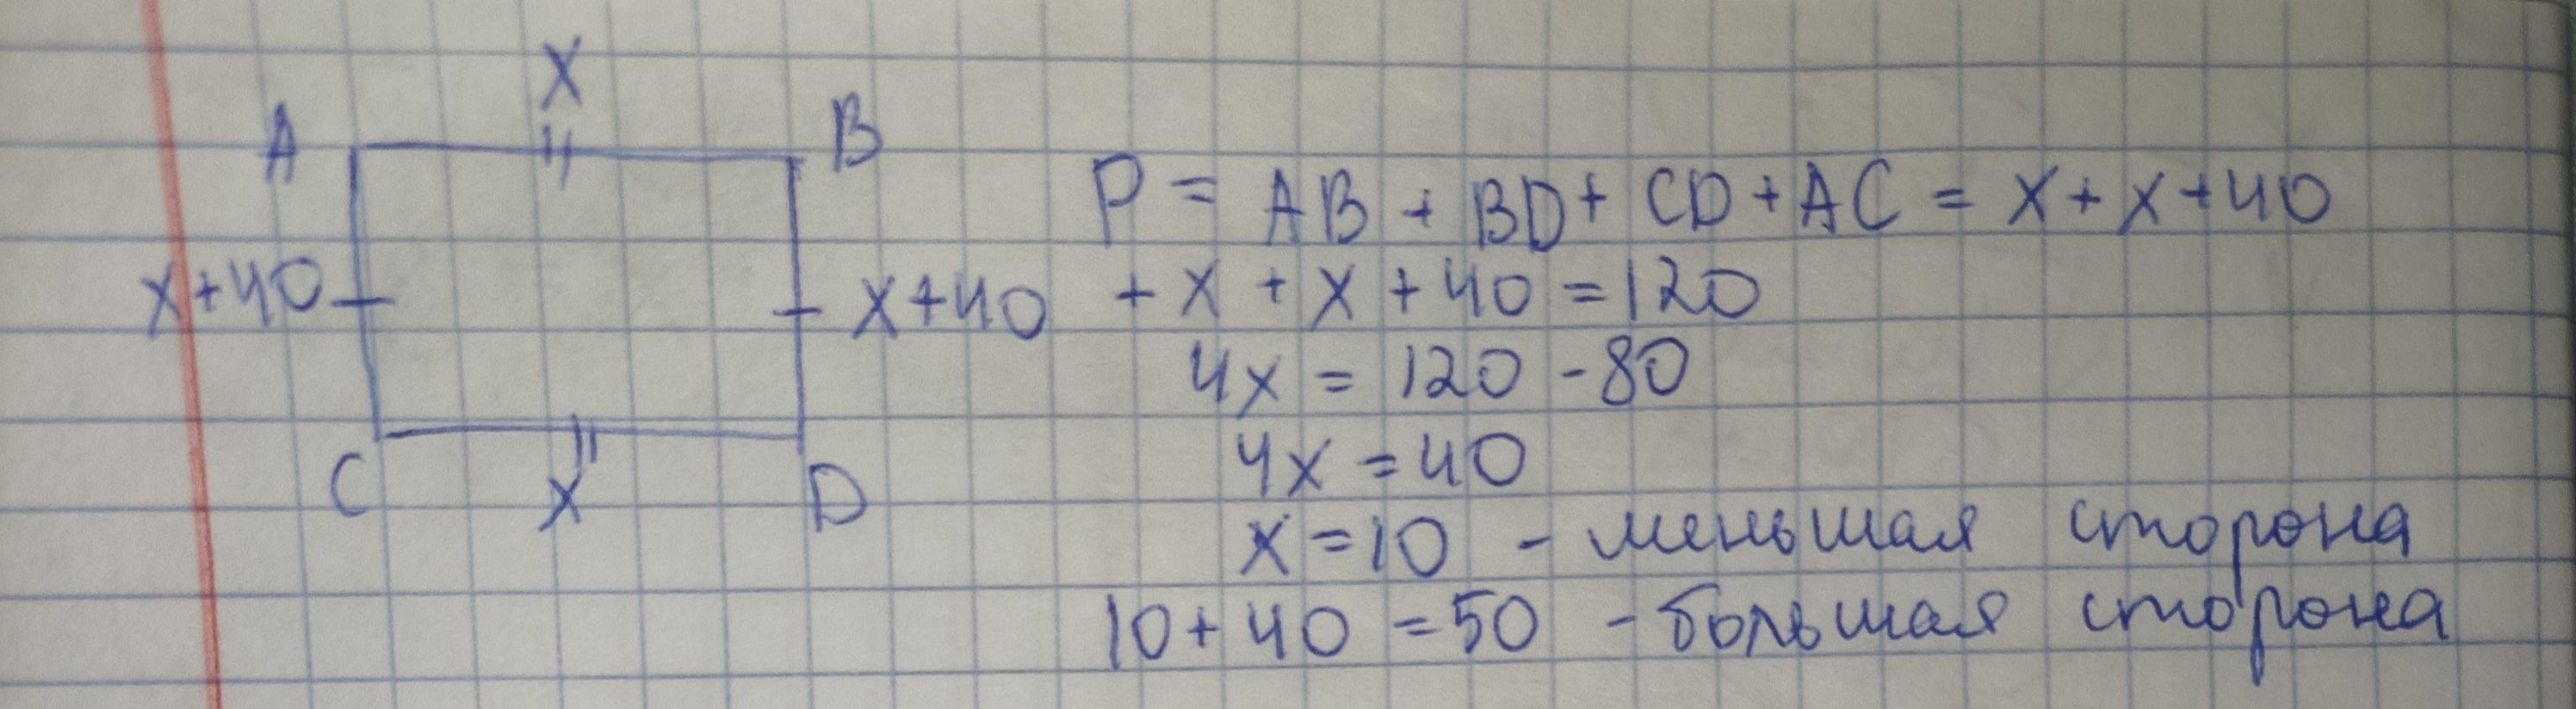 X
A
B
X+40
X+40
C
X
D
P = AB + BD + CD + AC = X + X + 40
+ X + X + 40 = 120
4X = 120 - 80
4X = 40
X = 10 - меньшая сторона
10 + 40 = 50 - большая сторона